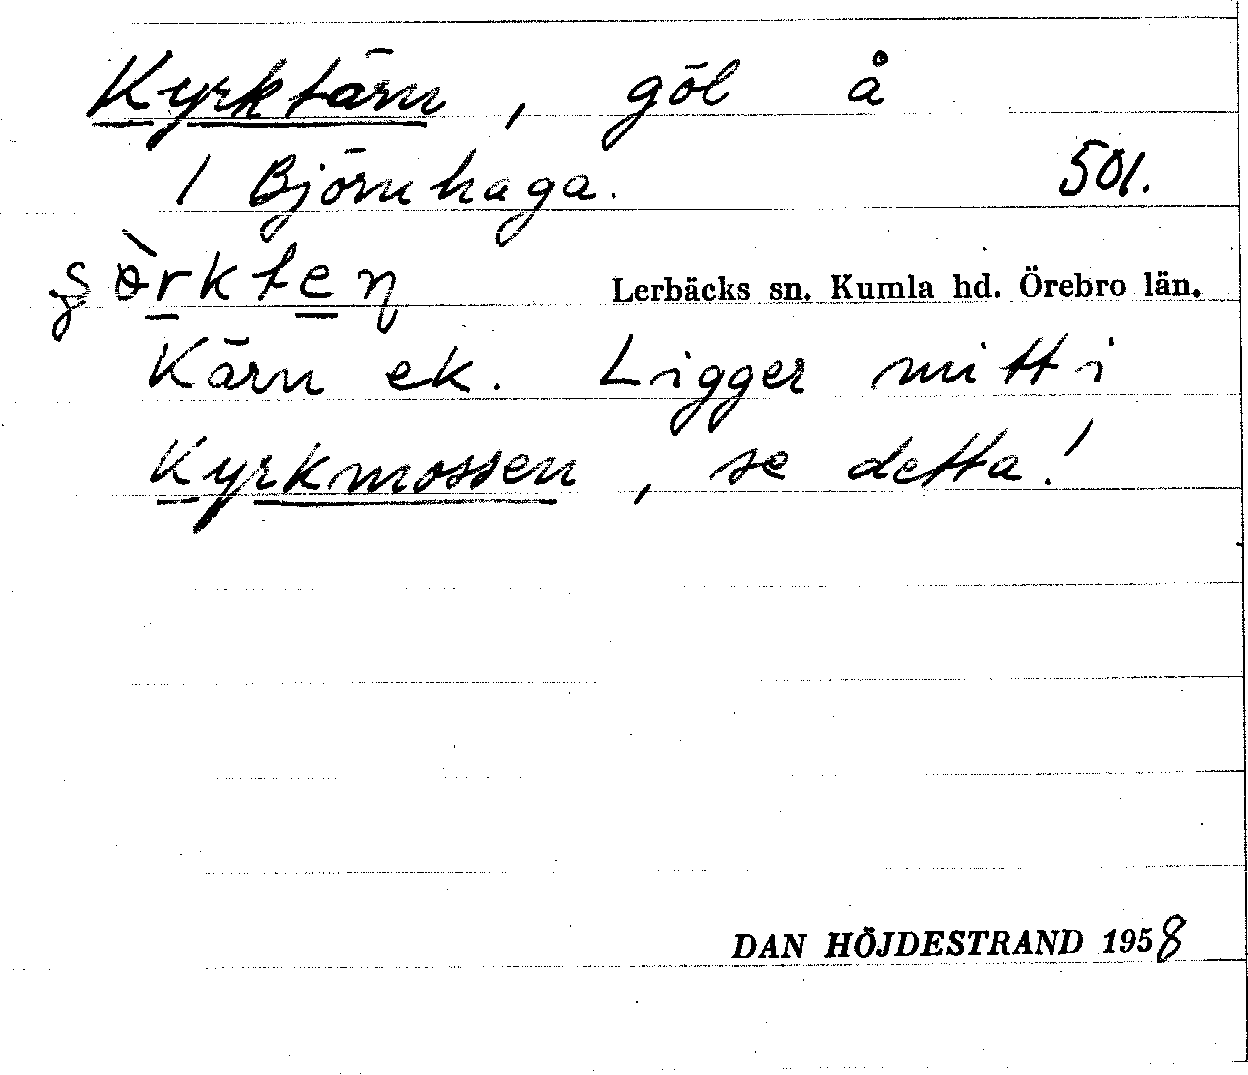 Kyrktärn, göl å
1 Björnhaga. 501.
Lerbäcks sn. Kumla hd. Örebro län.
Kärn ek. Ligger mitt i
Kyrkmossen, se detta!
DAN HÖJDESTRAND 1958